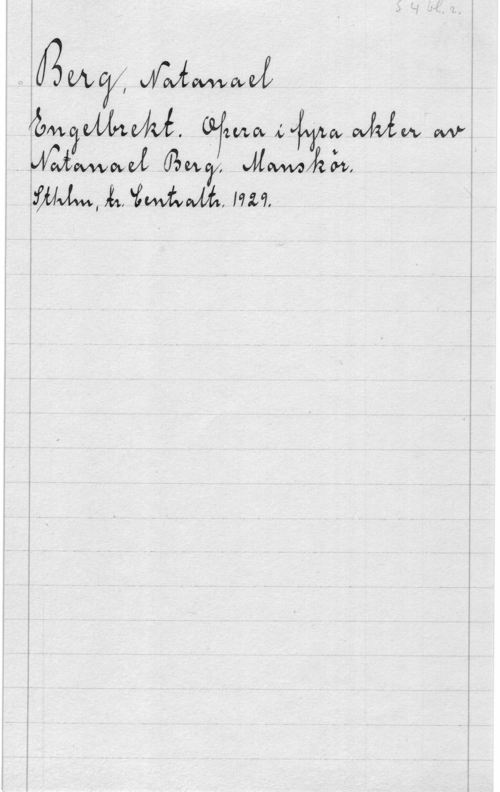 S 4 bl. 2.
Berg, Natanael
Engelbrekt. Opera i fyra akter av
Natanael Berg. Manskör.
Sthlm, tr. Centraltr. 1929.